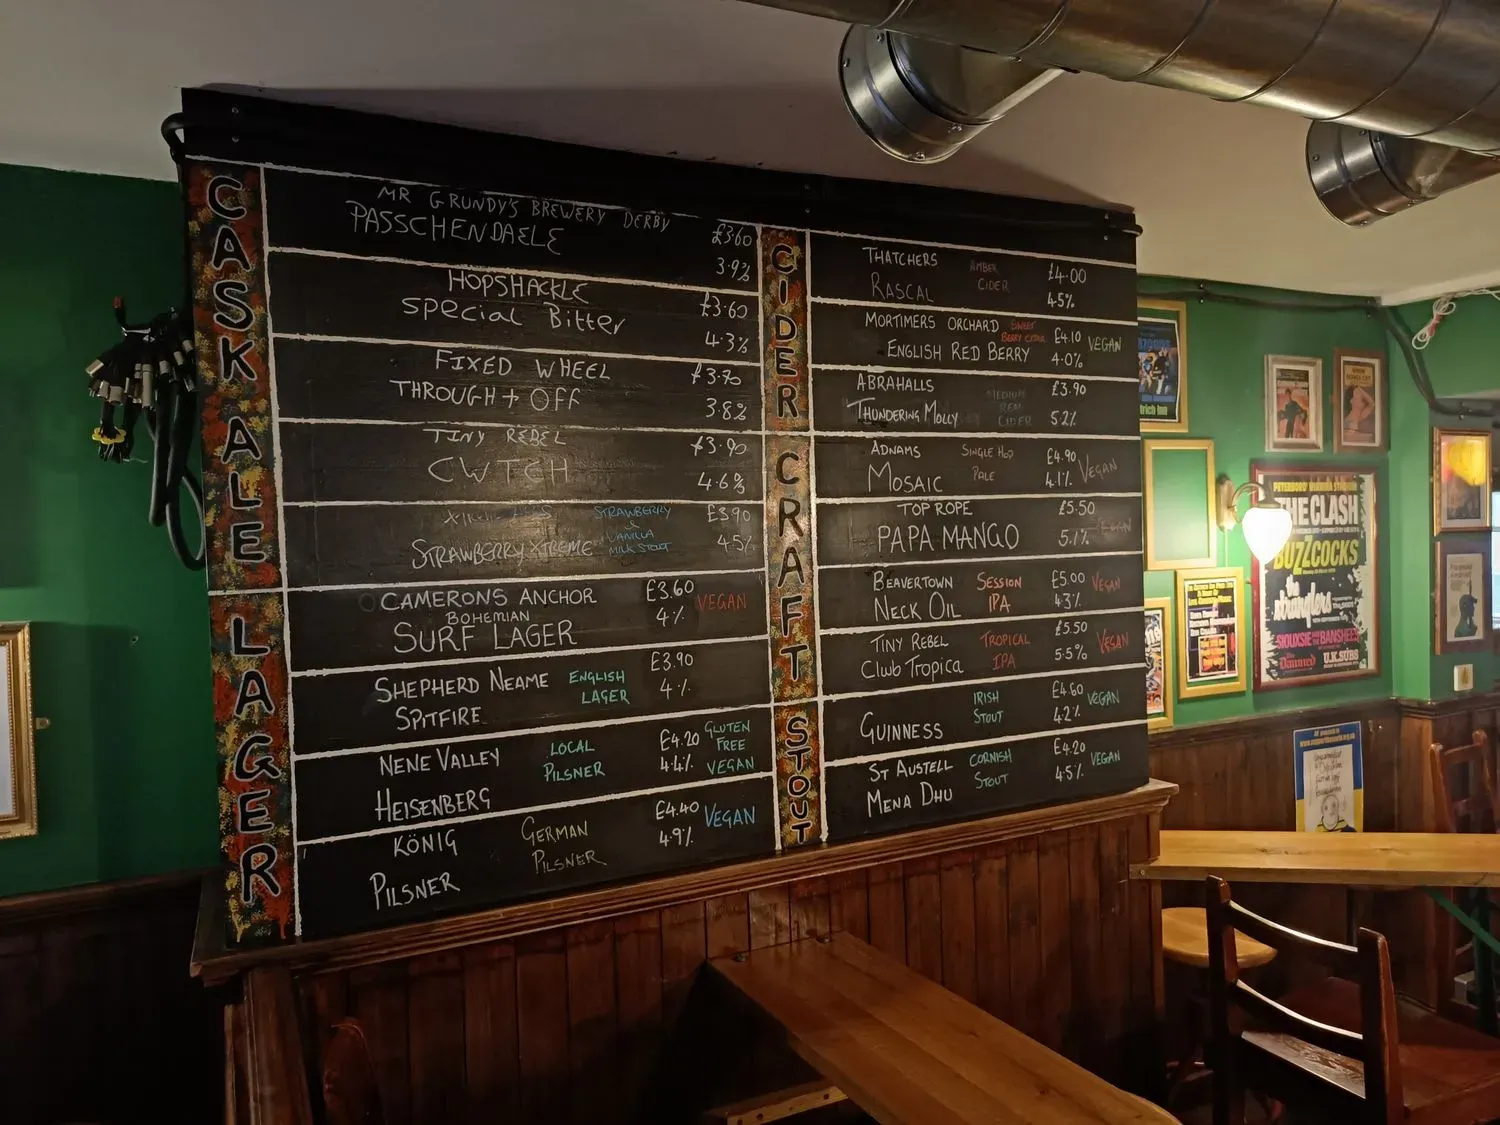 CASK ALE
MR GRUNDY'S BREWERY DERBY
PASSCHENDAELE
£3.60
3.9%
HOPSHACKLE
SPECIAL BITTER
£3.60
4.3%
FIXED WHEEL
THROUGH + OFF
£3.70
3.8%
TINY REBEL
CWTCH
£3.90
4.6%
STRAWBERRY XTREME
STRAWBERRY
&
VANILLA
MILK STOUT
£3.90
4.5%
LAGER
CAMERONS ANCHOR
BOHEMIAN
SURF LAGER
£3.60
4%
VEGAN
SHEPHERD NEAME
SPITFIRE
ENGLISH
LAGER
£3.90
4%
NENE VALLEY
HEISENBERG
LOCAL
PILSNER
£4.20
4.4%
GLUTEN
FREE
VEGAN
KÖNIG
PILSNER
GERMAN
PILSNER
£4.40
4.9%
VEGAN
CIDER
THATCHERS
RASCAL
AMBER
CIDER
£4.00
4.5%
MORTIMERS ORCHARD
ENGLISH RED BERRY
SWEET
BERRY CIDER
£4.10
4.0%
VEGAN
ABRAHALLS
THUNDERING MOLLY
MEDIUM
REAL
CIDER
£3.90
5.2%
CRAFT
ADNAMS
MOSAIC
SINGLE HOP
PALE
£4.90
4.1%
VEGAN
TOP ROPE
PAPA MANGO
£5.50
5.1%
VEGAN
BEAVERTOWN
NECK OIL
SESSION
IPA
£5.00
4.3%
VEGAN
TINY REBEL
CLUB TROPICA
TROPICAL
IPA
£5.50
5.5%
VEGAN
STOUT
GUINNESS
IRISH
STOUT
£4.60
4.2%
VEGAN
ST AUSTELL
MENA DHU
CORNISH
STOUT
£4.20
4.5%
VEGAN
PETERBORO' WIRRINA STADIUM
THE CLASH
BUZZCOCKS
the stranglers
SIOUXSIE AND THE BANSHEES
the Damned
U.K. SUBS